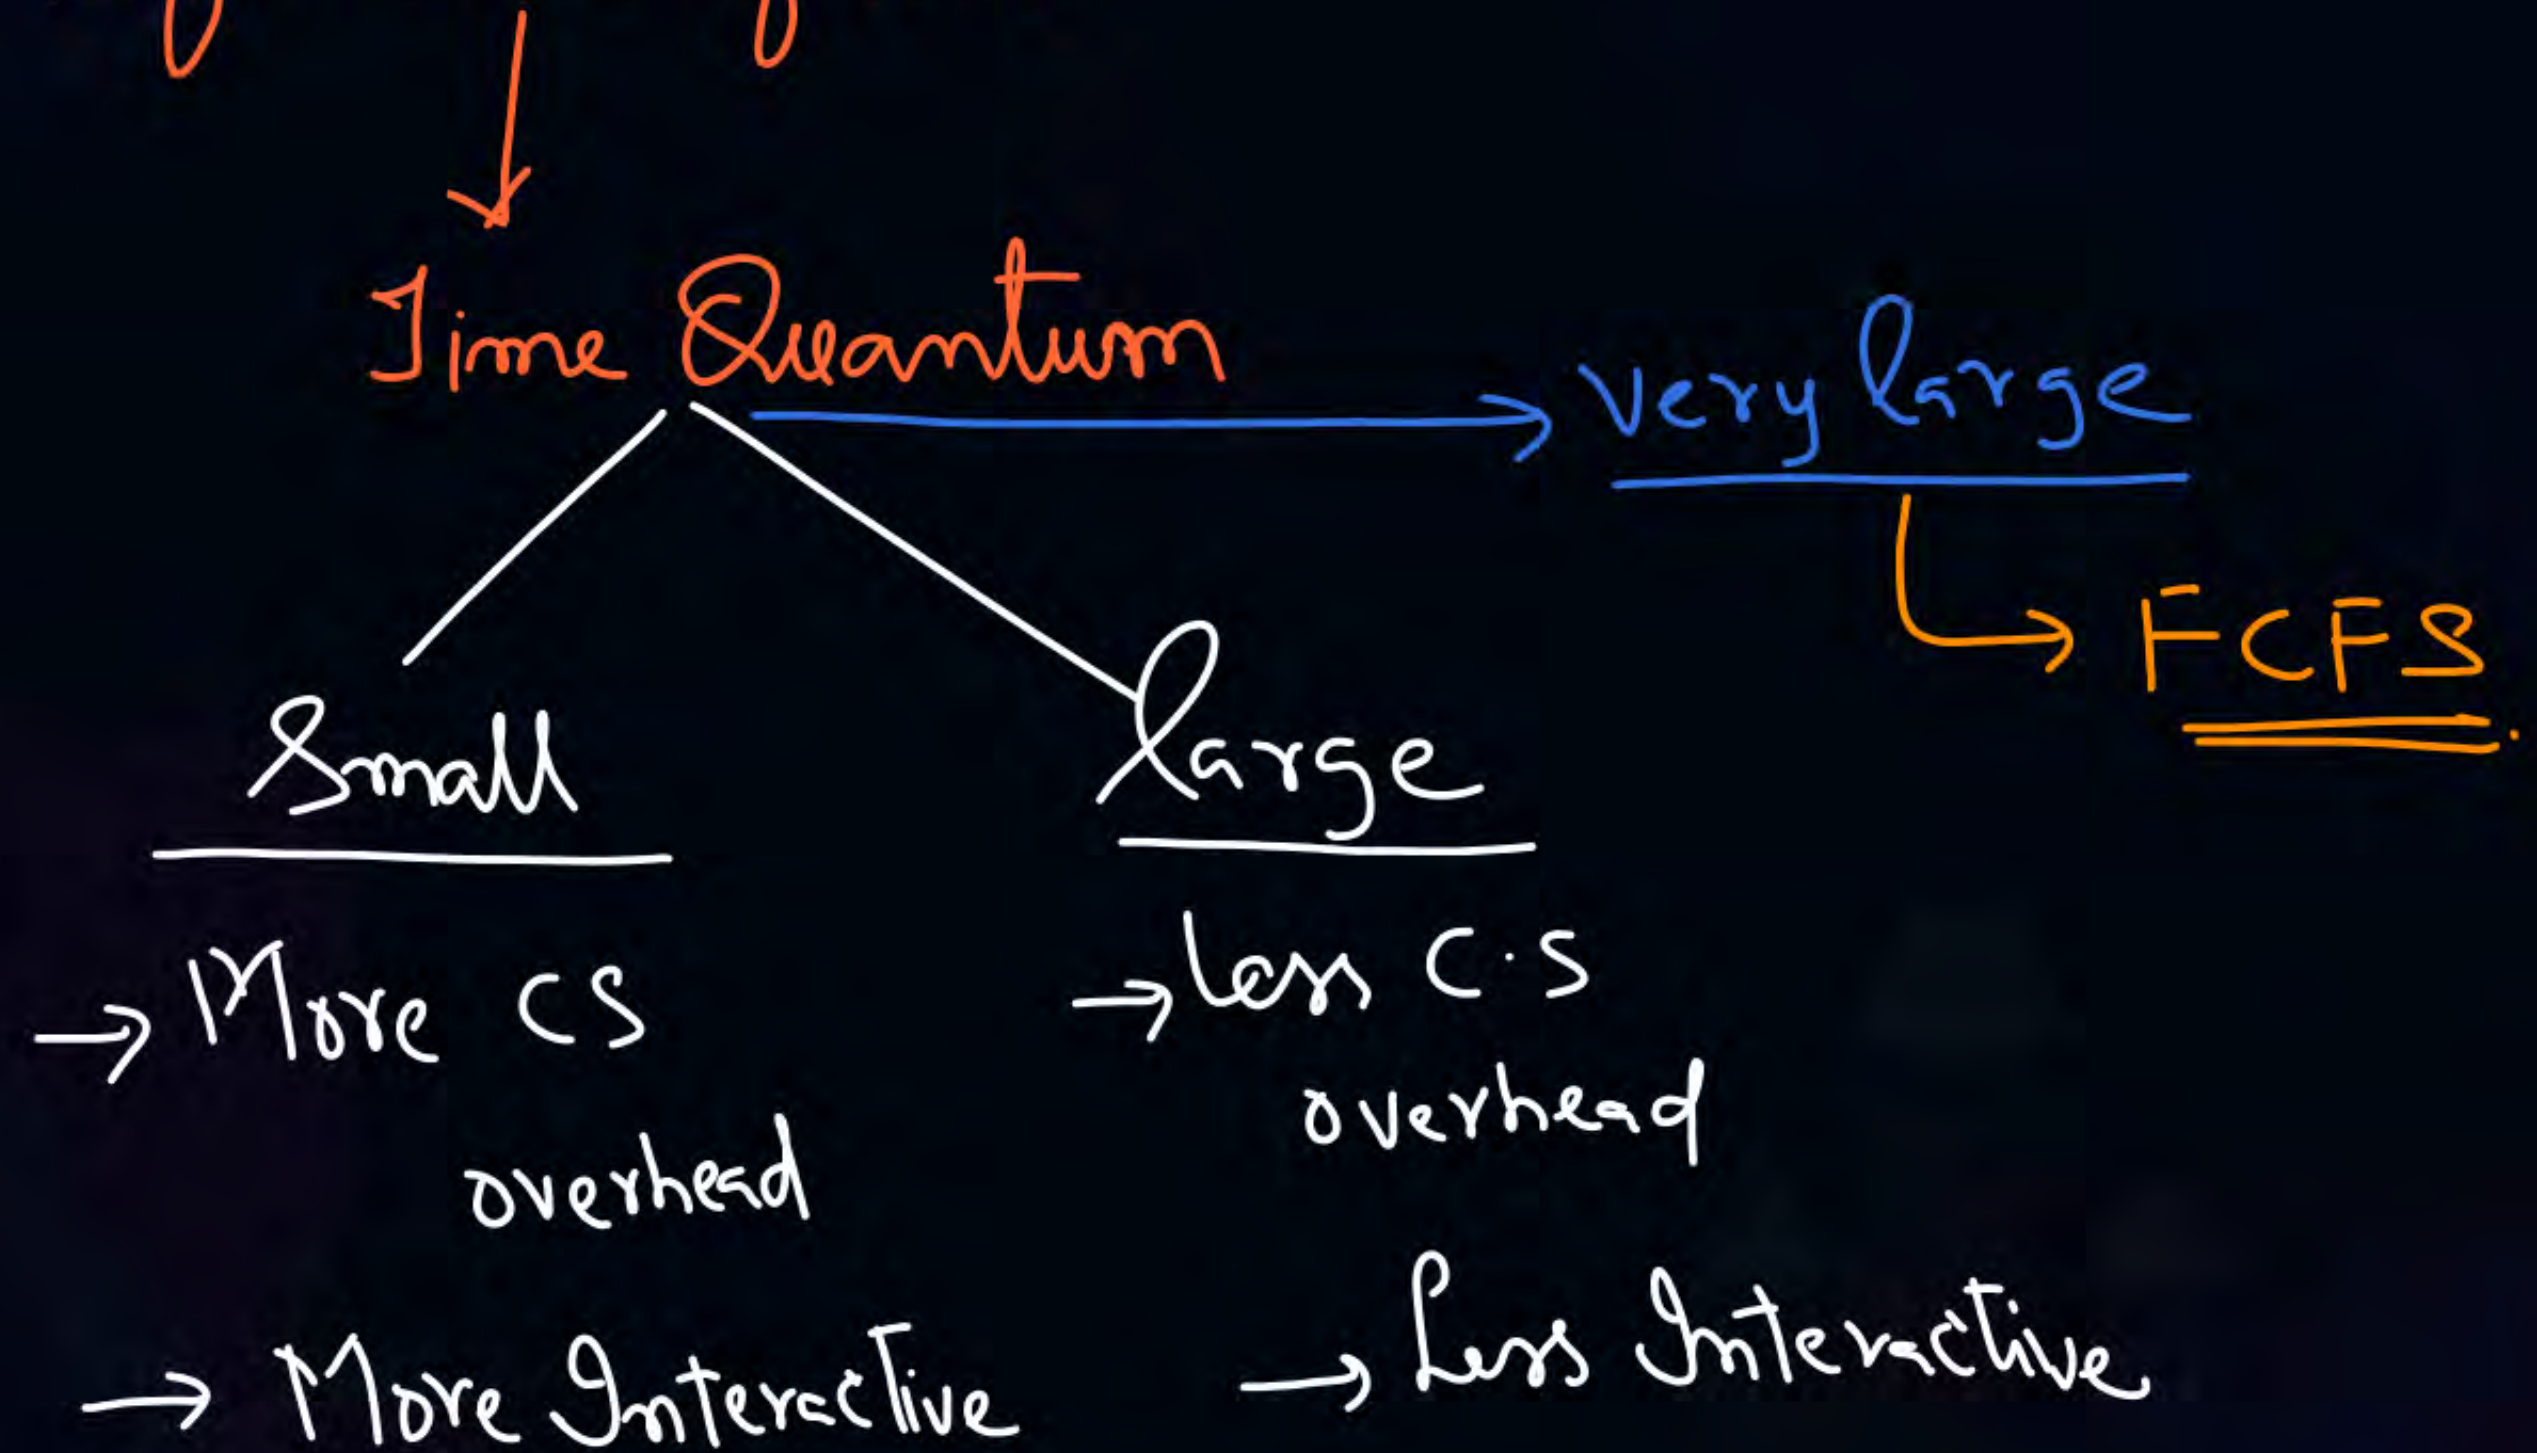 Time Quantum
very large
FCFS
Small
large
More CS
overhead
More Interactive
Less C.S
overhead
Less Interactive